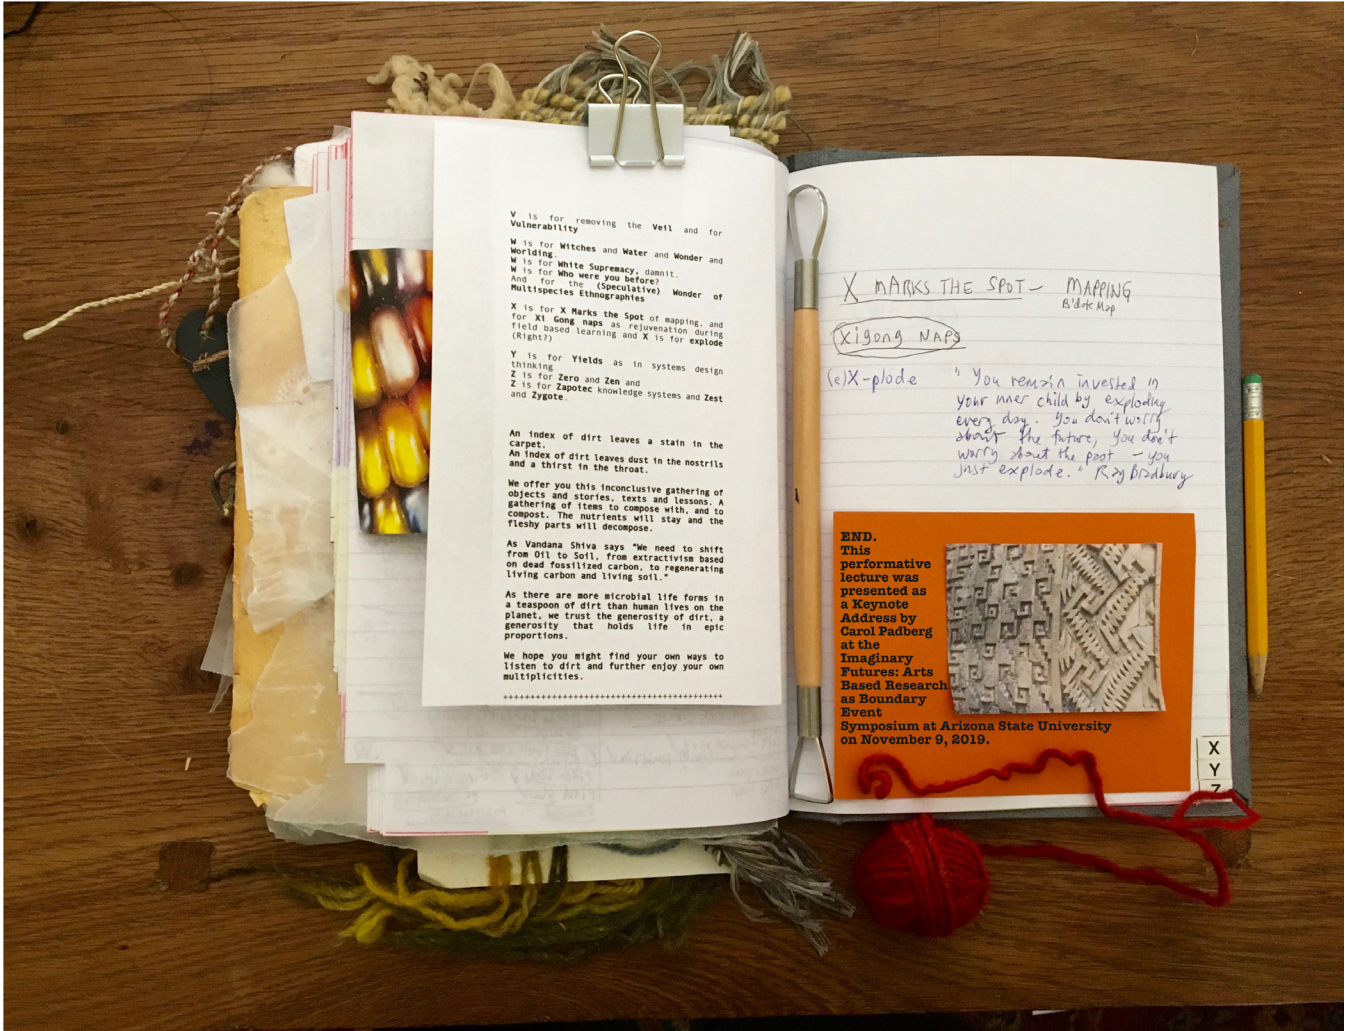 V is for removing the Veil and for
Vulnerability
W is for Witches and Water and Wonder and
Worlding.
W is for White Supremacy, damnit.
W is for Who were you before?
And for the (Speculative) Wonder of
Multispecies Ethnographies
X is for X Marks the Spot of mapping, and
for Xi Gong naps as rejuvenation during
field based learning and X is for explode
(Right?)
Y is for Yields as in systems design
thinking
Z is for Zero and Zen and
Z is for Zapotec knowledge systems and Zest
and Zygote.
An index of dirt leaves a stain in the
carpet.
An index of dirt leaves dust in the nostrils
and a thirst in the throat.
We offer you this inconclusive gathering of
objects and stories, texts and lessons. A
gathering of items to compose with, and to
compost. The nutrients will stay and the
fleshy parts will decompose.
As Vandana Shiva says "We need to shift
from Oil to Soil, from extractivism based
on dead fossilized carbon, to regenerating
living carbon and living soil."
As there are more microbial life forms in
a teaspoon of dirt than human lives on the
planet, we trust the generosity of dirt, a
generosity that holds life in epic
proportions.
We hope you might find your own ways to
listen to dirt and further enjoy your own
multiplicities.
++++++++++++++++++++++++++++++++++++++++
X MARKS THE SPOT - MAPPING
B'dote Map
Xigong NAPS
(e)X-plode "You remain invested in
your inner child by exploding
every day. You don't worry
about the future, you don't
worry about the past - you
just explode." Ray Bradbury
END.
This
performative
lecture was
presented as
a Keynote
Address by
Carol Padberg
at the
Imaginary
Futures: Arts
Based Research
as Boundary
Event
Symposium at Arizona State University
on November 9, 2019.
X
Y
Z